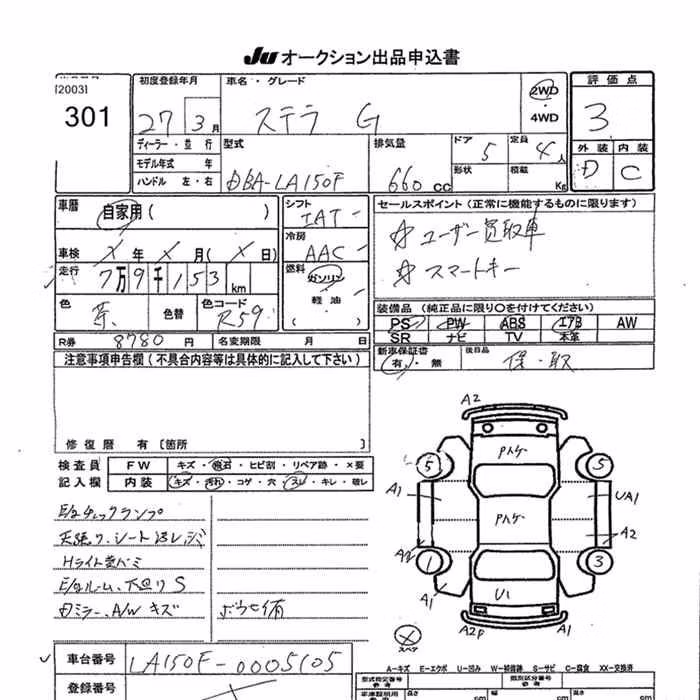 JU オークション出品申込書
[2003]
301
初度登録年月
27 3月
車名・グレード
ステラ G
2WD
・
4WD
評価点
3
外装 内装
D C
ディーラー・並行
モデル年式 年
ハンドル 左・右
型式
DBA-LA150F
排気量
660 cc
ドア
5
定員
4人
形状
積載
Kg
車歴
自家用( )
車検 X年 X月(X日)
走行 7万9千153km
色
色替
色コード
R59
シフト
IAT
冷房
AAC
燃料
ガソリン
・
軽油
( )
セールスポイント(正常に機能するものに限ります)
☆ ユーザー買取車
☆ スマートキー
装備品(純正品に限り○を付けてください)
PS PW ABS エアB AW
SR ナビ TV 本革
R券 8780円
名変期限 月 日
新車保証書
有・無
後日品
保・取
注意事項申告欄(不具合内容等は具体的に記入して下さい)
修復歴 有[箇所 ]
検査員
記入欄
FW キズ・飛石・ヒビ割・リペア跡・×要
内装 キズ・汚れ・コゲ・穴・スレ・キレ・破レ
E/gチェックランプ
天張り、シート汚レ
Hライト黄バミ
E/gルーム、下廻りS
Dミラー、A/Wキズ
ボウセイ有
A2
Pハゲ
5 5
A1 UA1
Pハゲ
A2 A2
1 3
A1 U1 A1
A2P
X
スペア
車台番号 LA150F-0005105
登録番号
A-キズ E-エクボ U-凹み W-補修跡 S-サビ C-腐食 XX-交換済
型式指定番号
類別区分番号
長さ 幅 高さ
cm cm cm